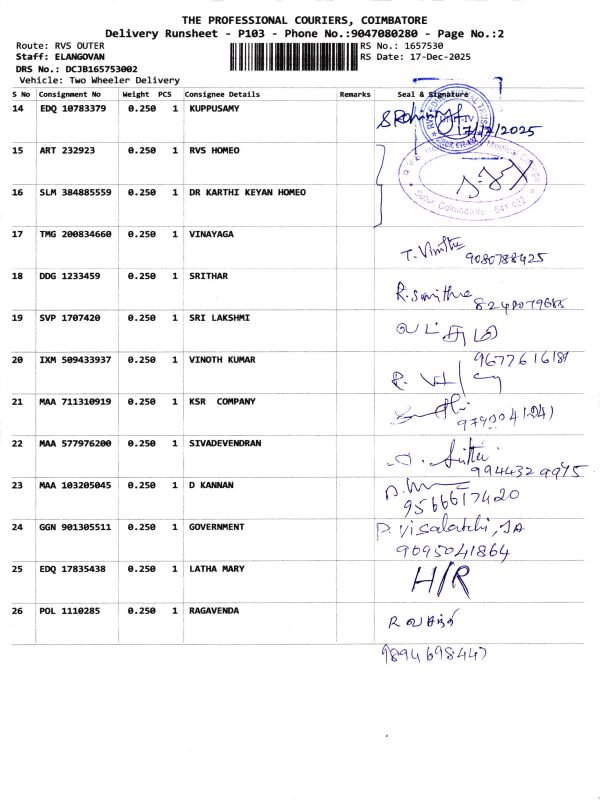 THE PROFESSIONAL COURIERS, COIMBATORE
Delivery Runsheet - P103 - Phone No.:9047080280 - Page No.:2
Route: RVS OUTER RS No.: 1657530
Staff: ELANGOVAN RS Date: 17-Dec-2025
DRS No.: DCJB165753002
Vehicle: Two Wheeler Delivery
S No Consignment No Weight PCS Consignee Details Remarks Seal & Signature
14 EDQ 10783379 0.250 1 KUPPUSAMY
17/12/2025
15 ART 232923 0.250 1 RVS HOMEO
16 SLM 384885559 0.250 1 DR KARTHI KEYAN HOMEO
Sulur Coimbatore - 641 402
17 TMG 200834660 0.250 1 VINAYAGA
9080788425
18 DDG 1233459 0.250 1 SRITHAR
19 SVP 1707420 0.250 1 SRI LAKSHMI
20 IXM 509433937 0.250 1 VINOTH KUMAR
21 MAA 711310919 0.250 1 KSR COMPANY
22 MAA 577976200 0.250 1 SIVADEVENDRAN
23 MAA 103205045 0.250 1 D KANNAN
9566617420
24 GGN 901305511 0.250 1 GOVERNMENT
9095041864
25 EDQ 17835438 0.250 1 LATHA MARY H/R
26 POL 1110285 0.250 1 RAGAVENDA
9894698447